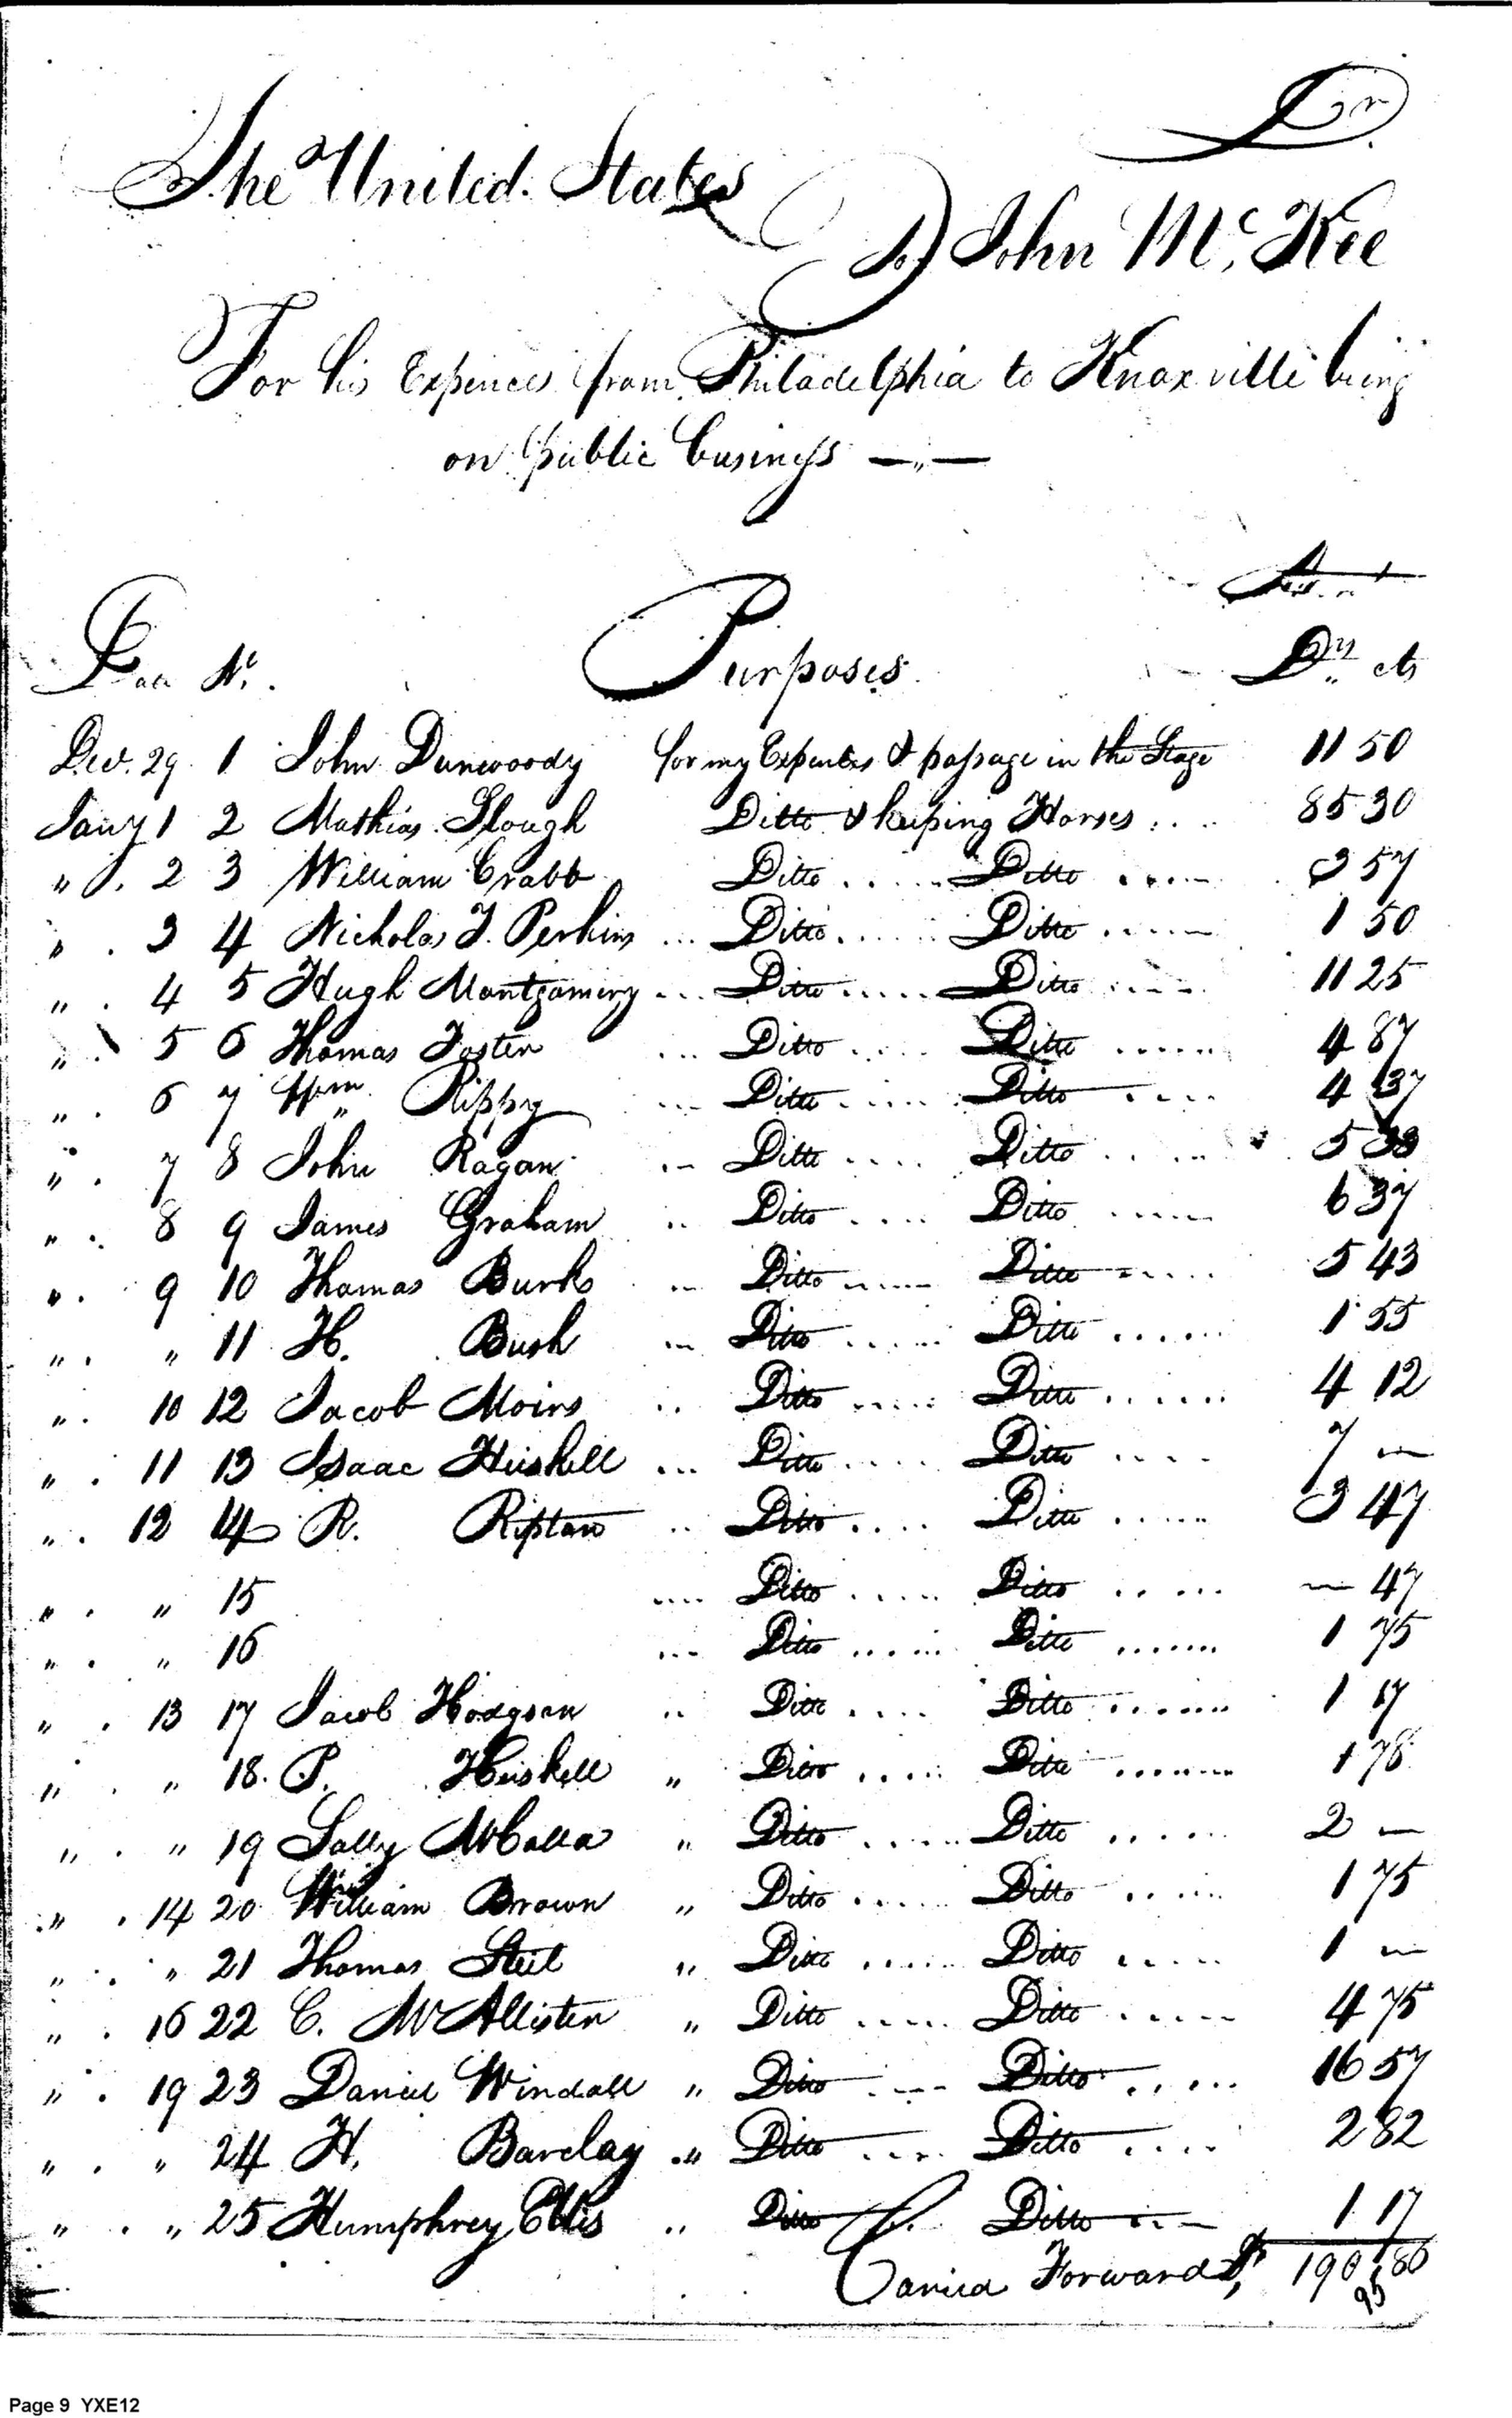 Dr.
The United States
To John McKee
For his Expences from Philadelphia to Knoxville being
on public business —„—
No. Purposes Drs. cts
Dec. 29 1 John Dunwoody for my Expences & passage in the Stage 11 50
Jany 1 2 Mathias Slough Ditto & keeping Horses .... 85 30
" . 2 3 William Crabb Ditto .... Ditto .... 3 57
" . 3 4 Nicholas T. Perkins ... Ditto .... Ditto .... 1 50
" . 4 5 Hugh Montgomery ... Ditto .... Ditto .... 11 25
" . 5 6 Thomas Foster ... Ditto .... Ditto .... 4 87
" . 6 7 Wm. Rippy ... Ditto .... Ditto .... 4 37
" . 7 8 John Ragan .. Ditto .... Ditto .... 5 33
" . 8 9 James Graham .. Ditto .... Ditto .... 6 37
" . 9 10 Thomas Burk .. Ditto .... Ditto .... 5 43
" . " 11 H. Bush ... Ditto .... Ditto .... 1 55
" . 10 12 Jacob Moirs .. Ditto .... Ditto .... 4 12
" . 11 13 Isaac Huskell ... Ditto .... Ditto .... 7 —
" . 12 14 R. Riptan .. Ditto .... Ditto .... 3 47
" . " 15 .... Ditto .... Ditto .... — 47
" . " 16 ... Ditto .... Ditto .... 1 75
" . 13 17 Jacob Hodgson .. Ditto .... Ditto .... 1 17
" . " 18. P. Heiskell " Ditto .... Ditto .... 1 78
" . " 19 Sally McCalla " Ditto .... Ditto .... 2 —
" . 14 20 William Brown " Ditto .... Ditto .... 1 75
" . " 21 Thomas Steel " Ditto .... Ditto .... 1 —
" . 16 22 C. McAllister " Ditto .... Ditto .... 4 75
" . 19 23 Daniel Windall " Ditto .... Ditto .... 16 57
" . " 24 H. Barclay " Ditto .... Ditto .... 2 82
" . " 25 Humphrey Ellis .. Ditto .... Ditto .... 1 17
Carried Forward $ 190 86
95
Page 9 YXE12